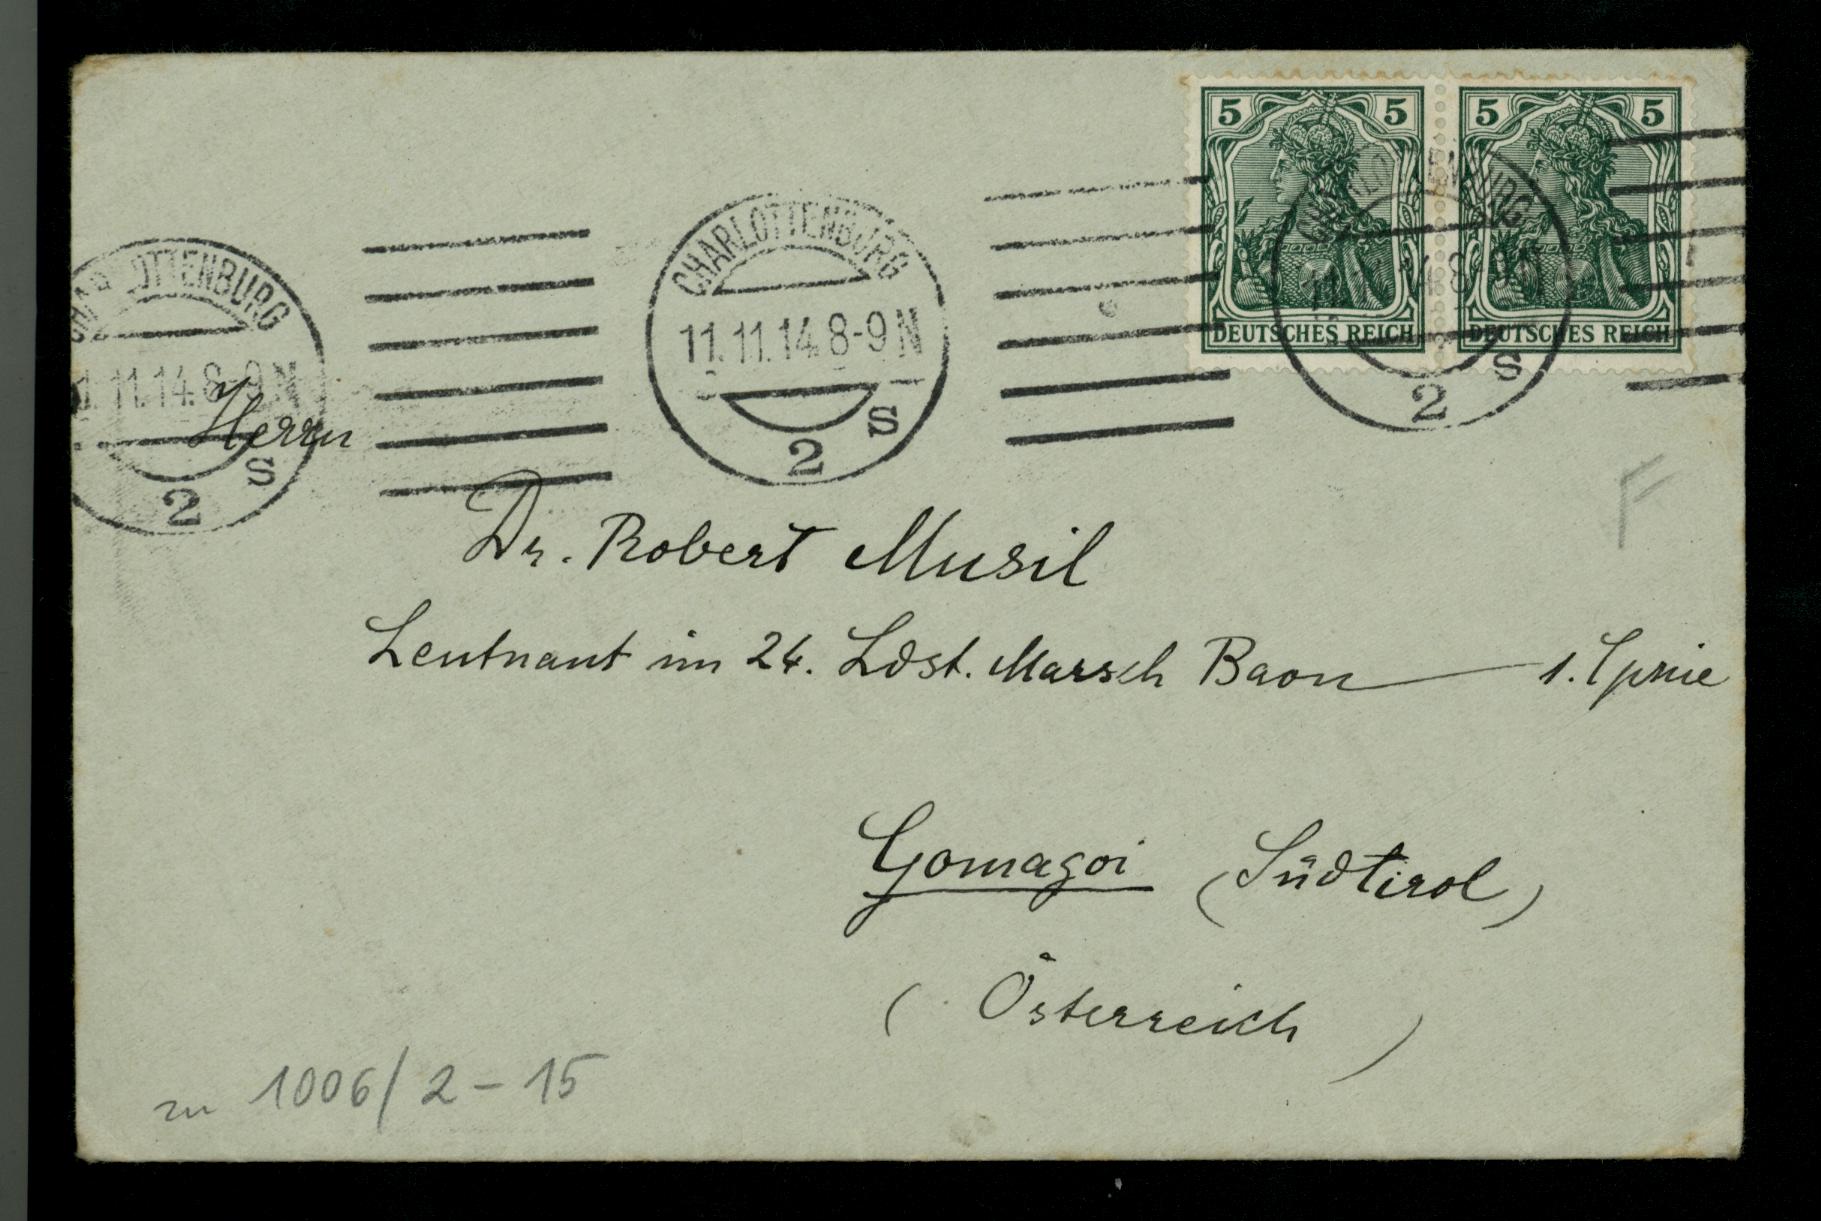 5 5 5 5
DEUTSCHES REICH DEUTSCHES REICH
CHARLOTTENBURG
11.11.14. 8-9 N
2 S
CHARLOTTENBURG
11.11.14. 8-9 N
2 S
CHARLOTTENBURG
11.11.14. 8-9 N
2 S
Herrn
Dr. Robert Musil
Leutnant im 24. Ldst. Marsch Baon — 1. Cpnie
Gomagoi (Südtirol)
(Österreich)
F
zu 1006/2-15